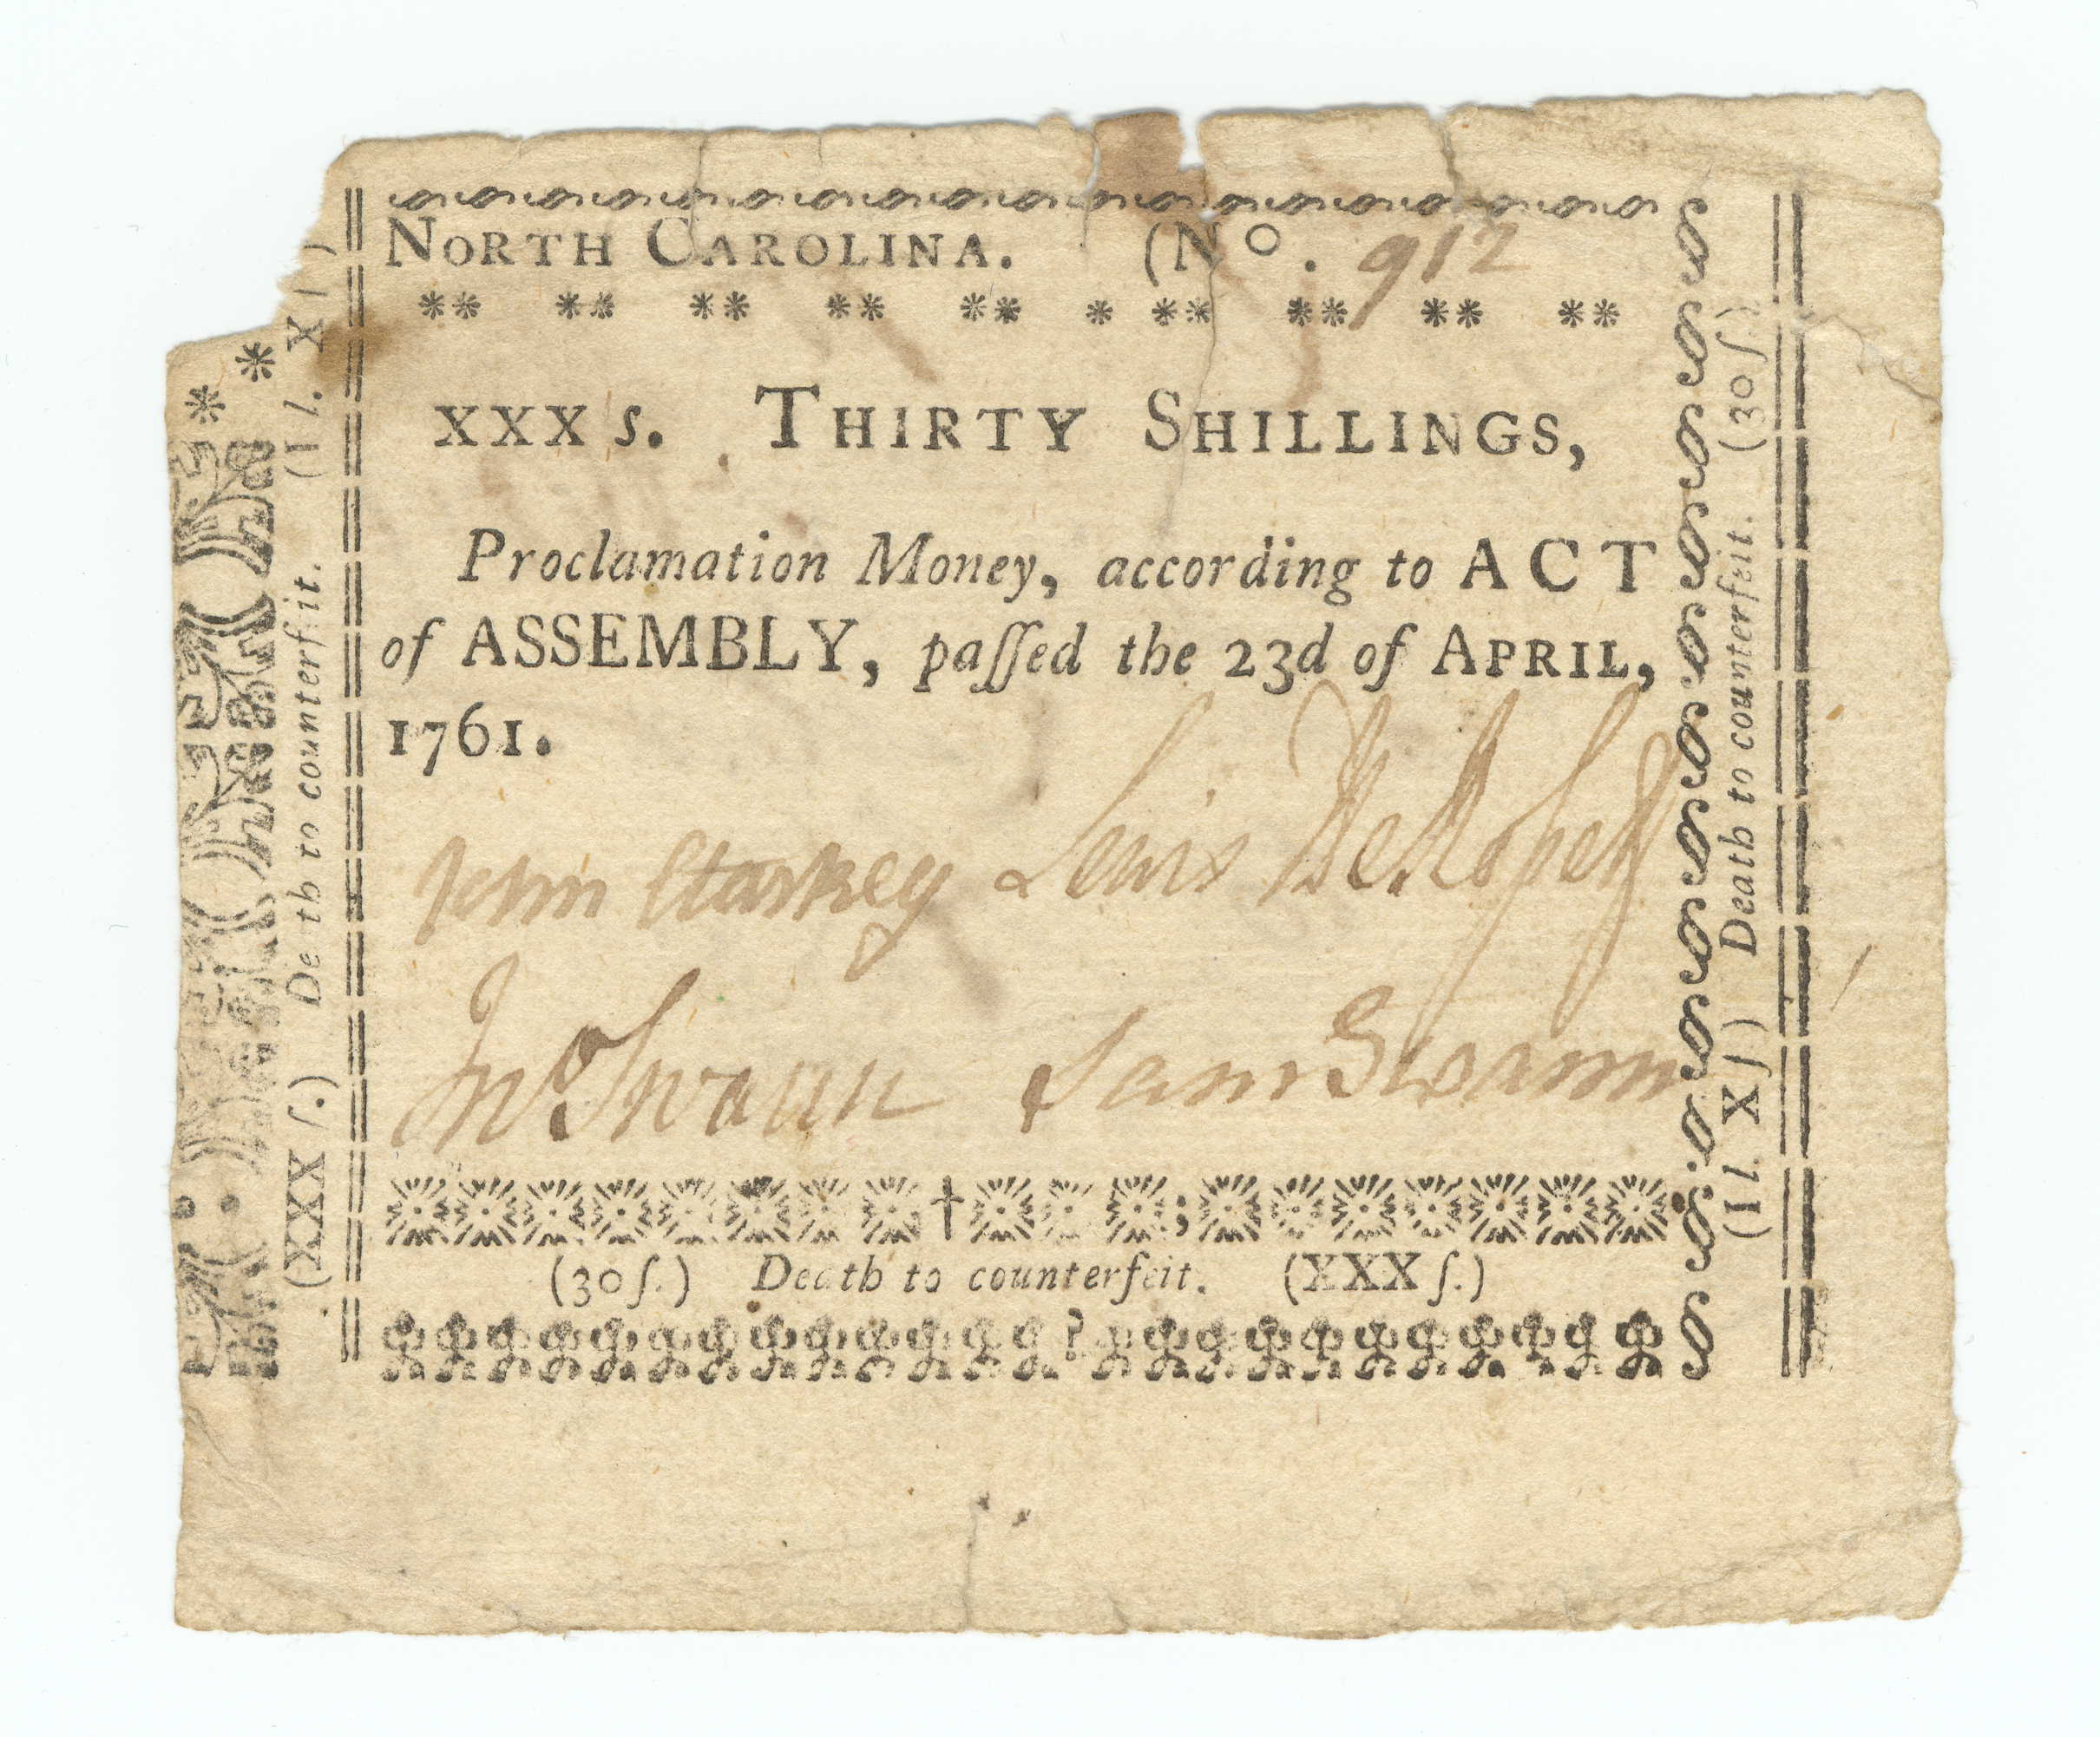 NORTH CAROLINA. (No. 912
** ** ** ** ** * ** ** ** **
XXX s. THIRTY SHILLINGS,
Proclamation Money, according to ACT
of ASSEMBLY, paſſed the 23d of APRIL,
1761.
John Starkey Lewis DeRosset
Jno Swann Sam Swann
(30ſ.) Death to counterfeit. (XXX ſ.)
(XXX ſ.) De th to counterf it. (1 l. X ſ )
(1 l. X ſ) Death to counterfeit. (30 ſ.)